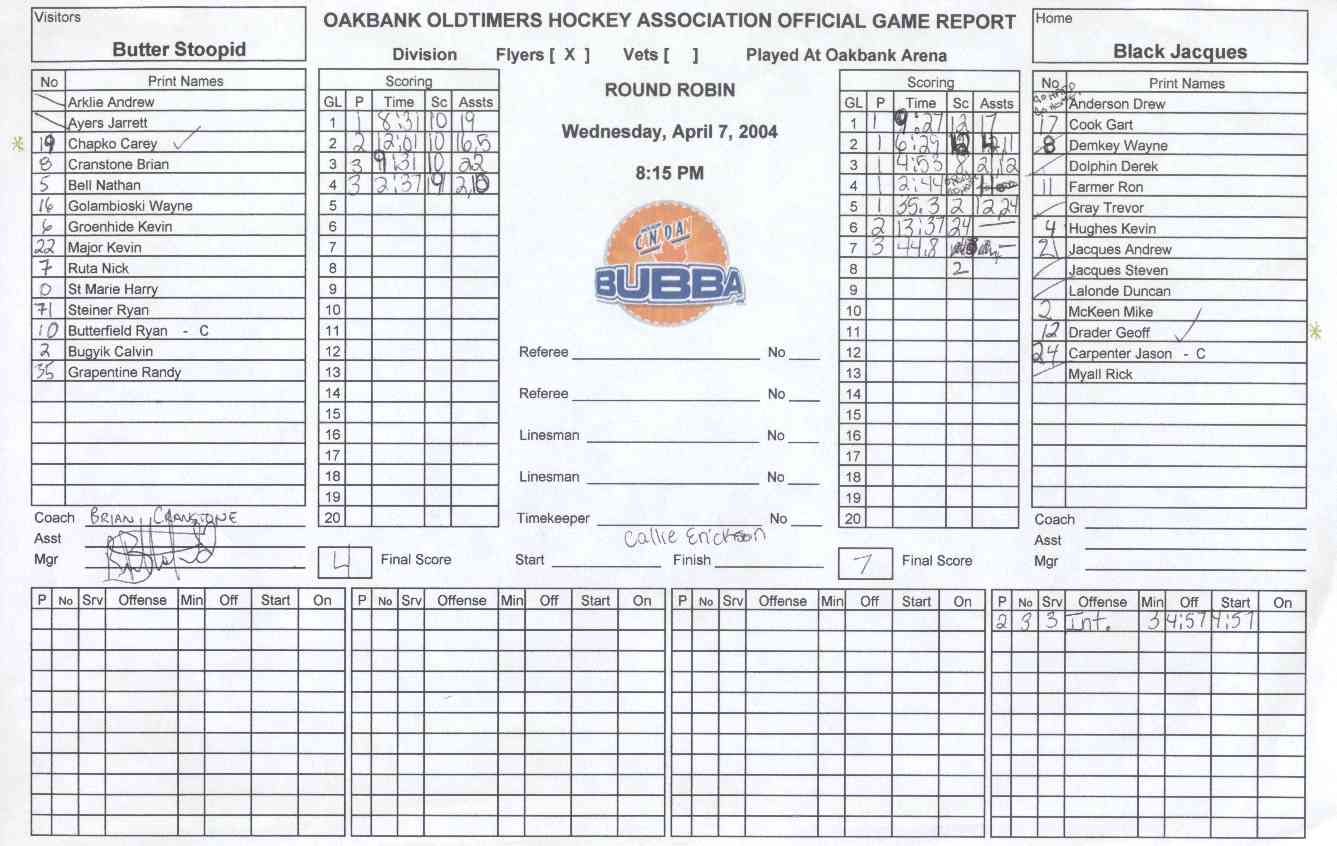 Visitors
Butter Stoopid
OAKBANK OLDTIMERS HOCKEY ASSOCIATION OFFICIAL GAME REPORT
Division Flyers [ X ] Vets [ ] Played At Oakbank Arena
Home
Black Jacques
ROUND ROBIN
Wednesday, April 7, 2004
8:15 PM
No Print Names
Arklie Andrew
Ayers Jarrett
19 Chapko Carey
8 Cranstone Brian
5 Bell Nathan
16 Golambioski Wayne
6 Groenhide Kevin
22 Major Kevin
7 Ruta Nick
0 St Marie Harry
71 Steiner Ryan
10 Butterfield Ryan - C
2 Bugyik Calvin
35 Grapentine Randy
Coach BRIAN CRANSTONE
Asst
Mgr
Scoring
GL P Time Sc Assts
1 1 8:31 10 19
2 2 12:01 10 16,5
3 3 9:31 10 22
4 3 2:37 19 2,10
5
6
7
8
9
10
11
12
13
14
15
16
17
18
19
20
4 Final Score
CANADIAN
BUBBA
Referee No
Referee No
Linesman No
Linesman No
Timekeeper No
Callie Erickson
Start Finish
Scoring
GL P Time Sc Assts
1 1 9:27 12 17
2 1 6:29 12 4,11
3 1 4:53 8 21,12
4 1 2:44
5 1 35.3 2 12,24
6 2 13:37 24 —
7 3 44.8 —
8 2
9
10
11
12
13
14
15
16
17
18
19
20
7 Final Score
No Print Names
Anderson Drew
17 Cook Gart
8 Demkey Wayne
Dolphin Derek
11 Farmer Ron
Gray Trevor
4 Hughes Kevin
21 Jacques Andrew
Jacques Steven
Lalonde Duncan
2 McKeen Mike
12 Drader Geoff
24 Carpenter Jason - C
Myall Rick
Coach
Asst
Mgr
P No Srv Offense Min Off Start On
P No Srv Offense Min Off Start On
P No Srv Offense Min Off Start On
P No Srv Offense Min Off Start On
2 3 3 Int. 3 4:57 4:57